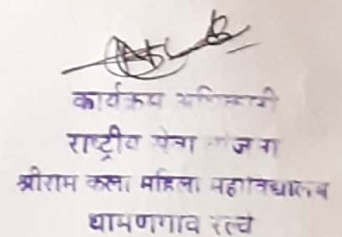 कार्यक्रम अधिकारी
राष्ट्रीय सेवा योजना
श्रीराम कला महिला महाविद्यालय
धामणगाव रेल्वे